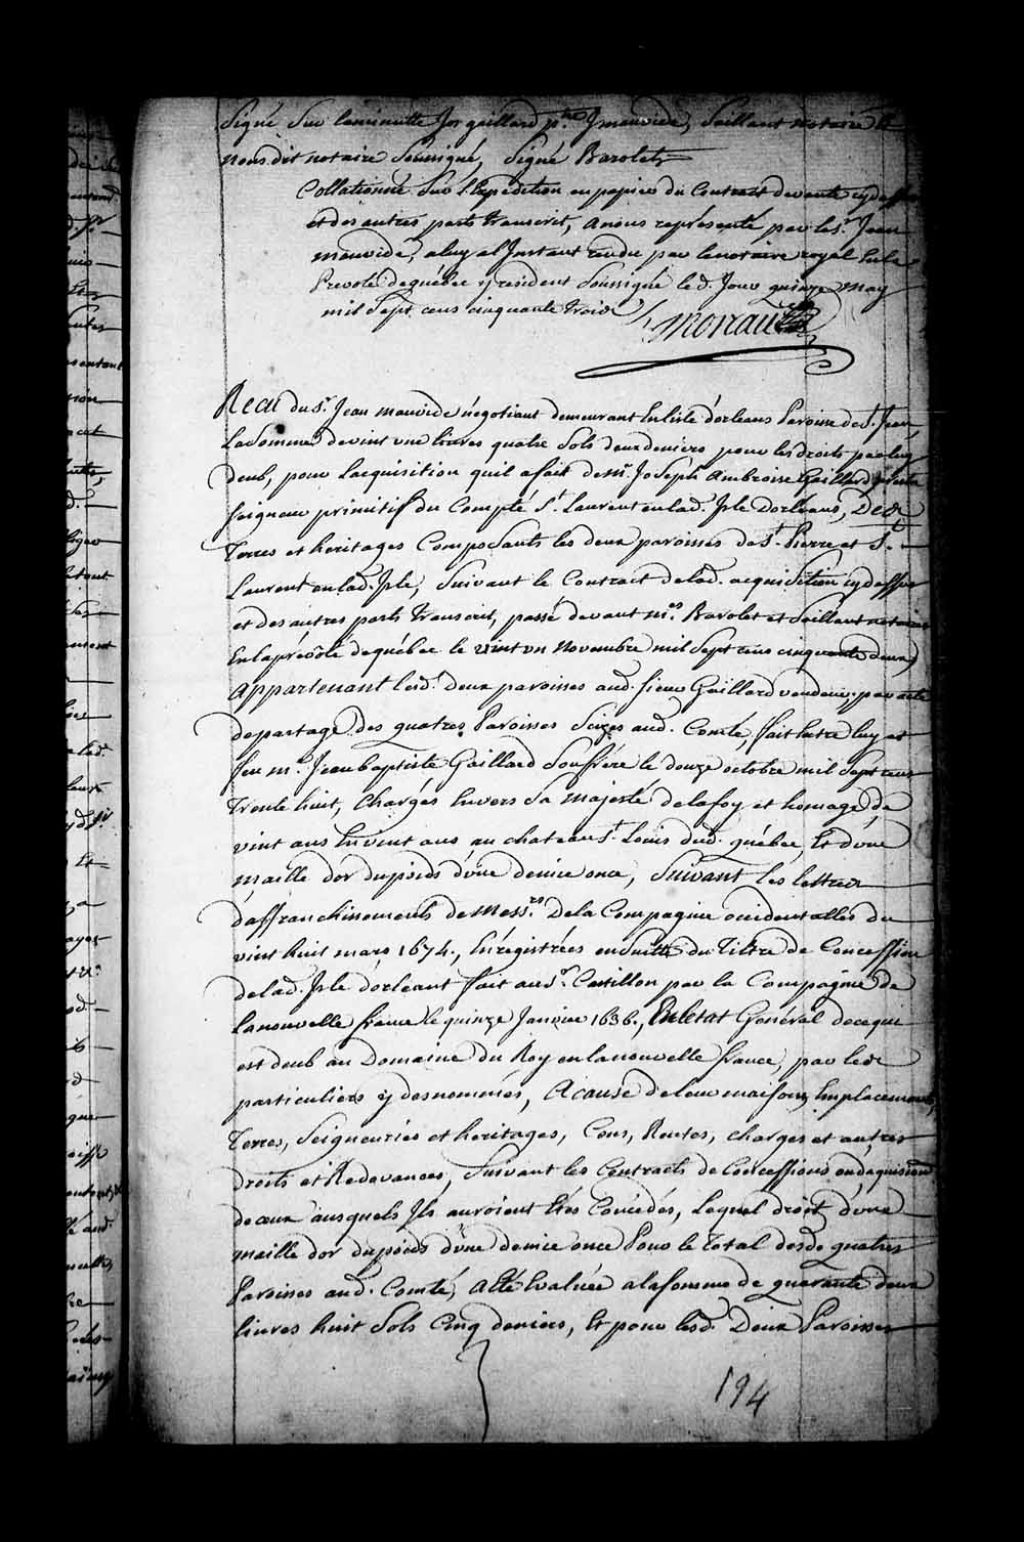 Signé Sur laminutte Jos gaillard p.tre J mauvide, Saillant notaire Et
nous dit notaire Soussigné, Signé Barolet
Collationné Sur l'Expédition en papier du Contract devant cy dessus
et des autres parts transcrit, anous représenté par le Sr. Jean
mauvide, aluy al Jnstant rendu par lenotaire royal En la
Prevoté dequébec y resident Soussigné led. Jour quinze May
mil Sept cens cinquante trois
Recu du Sr. Jean mauvide négotiant demeurant En l'isle d'orleans Paroisse de St. Jean,
La Somme de vint une livres quatre Sols deux deniers pour les droits par luy
deub, pour lacquisition quil afait de Mr. Joseph Ambroise Gaillard
Seigneur primitif du Compté St. Laurent en lad. Jsle Dorléans, Des
Terres et heritages Composants les deux paroisses de St. Pierre et St.
Laurent en lad. Jsle, Suivant le Contract delad. acquisition cy dessus
et des autres parts transcrit, passé devant mes. Barolet et Saillant notaires
En la prévôté dequébec le vint un Novembre mil Sept cens cinquante deux,
appartenant lesd. deux paroisses aud. sieur Gaillard vendeur, par acte
departage des quatres Paroisses Seizes aud. Comté, fait Entre luy et
feu mr. Jean baptiste Gaillard Son frére le douze octobre mil Sept cens
Trente huit, Chargés Envers Sa Majesté de la foy et homage de
vint ans En vint ans au chateau St. Louis dud. québec, Et d'une
maille d'or du poids d'une demie once, Suivant les lettres
d'affranchissements de Messrs. De la Compagnie occidentalles du
vint huit mars 1674, Enregistrées en Suitte du Tiltre de Concession
delad. Jsle d'orleant fait au Sr. Castillon par la Compagnie de
la nouvelle france le quinze Janvier 1636, En l'Etat Général dece qui
est deub au Domaine du Roy en la nouvelle france, par les
particuliers y desnommés, A cause de leur maisons, Emplacements,
Terres, Seigneuries et heritages, Cens, Rentes, charges et autres
droits et Redevances, Suivant les Contracts de Concessions ou dacquisitions
de ceux ausquels Jls auroient Etés Concédés, Lequel droit d'une
maille d'or du poids d'une demie once Pour le Total desd. quatres
Paroisses aud. Comté, A Eté Evaluée a la somme de quarante deux
livres huit Sols Cinq deniers, Et pour lesd. Deux Paroisses
194